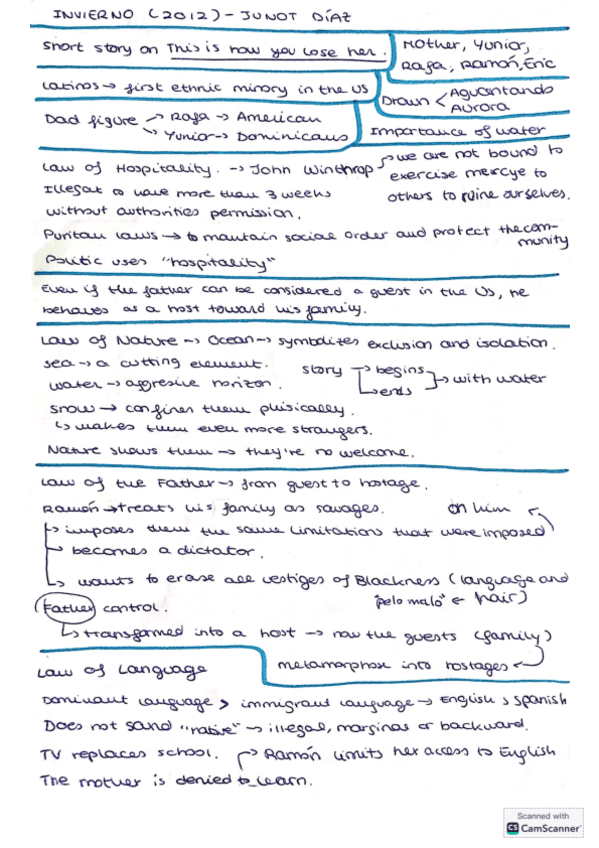 INVIERNO (2012) - JUNOT DÍAZ
Short story on This is how you lose her.
Mother, Yunior,
Rafa, Ramón, Eric
Latinos → first ethnic minory in the US
Drawn < Aguantando
Aurora
Dad figure → Rafa → American
→ Yunior → Dominicans
Importance of water
Law of Hospitality. → John Winthrop → we are not bound to
exercise mercye to
others to ruine ourselves.
Illegal to have more than 3 weeks
without authorities permission.
Puritan laws → to maintain social order and protect the com-
munity
Politic uses "hospitality"
Even if the father can be considered a guest in the US, he
behaves as a host toward his family.
Law of Nature → Ocean → symbolizes exclusion and isolation.
sea → a cutting element.
water → aggresive horizon.
story → begins
→ ends
→ with water
snow → confines them phisically.
↳ makes them even more strangers.
Nature shows them → they're no welcome.
Law of the Father → from guest to hostage.
Ramón → treats his family as savages.
→ imposes them the same limitations that were imposed
on him
→ becomes a dictator.
↳ wants to erase all vestiges of Blackness (language and
"pelo malo" ← hair)
Father control.
↳ transformed into a host → now the guests (family)
metamorphose into hostages ←
Law of Language
Dominant language > immigrant language → English > Spanish
Does not sand "native" → illegal, marginas or backward.
TV replaces school.
→ Ramón limits her access to English
The mother is denied to learn.
Scanned with
CS CamScanner